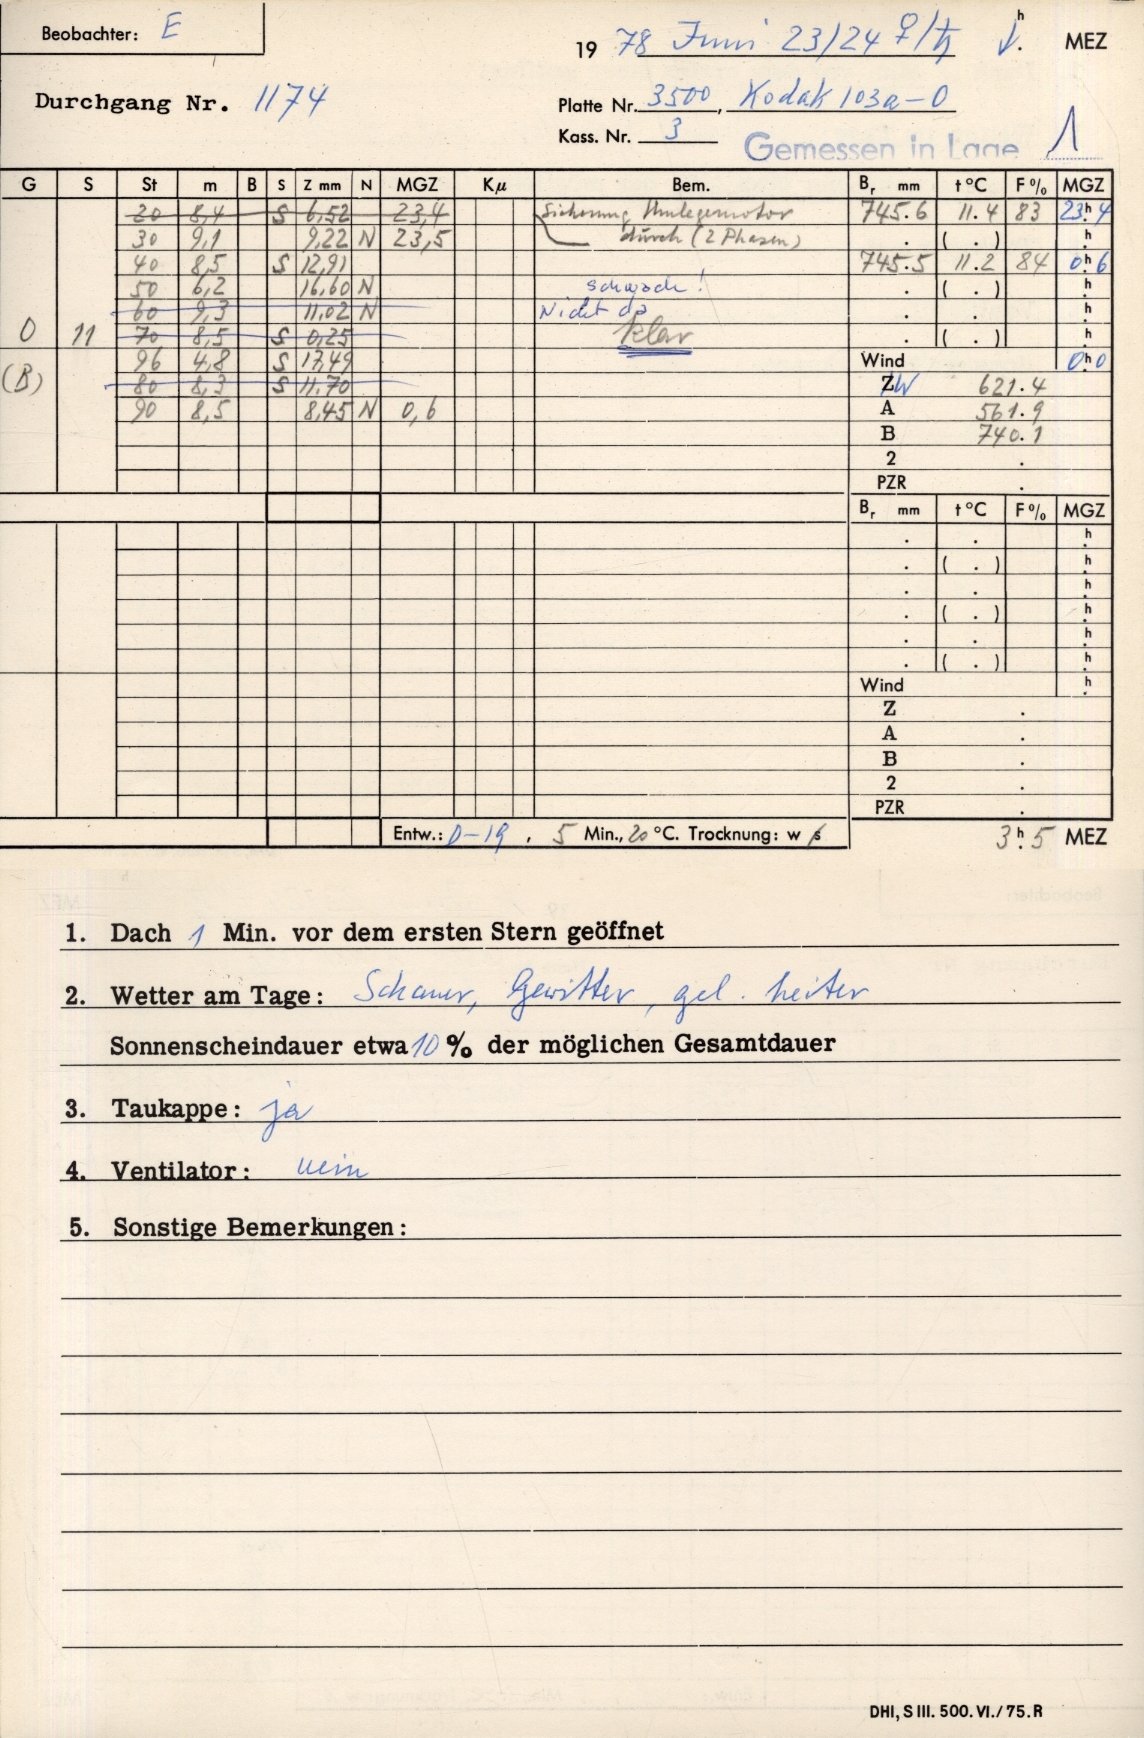 Beobachter: E
19 78 Juni 23/24 ♀/♄ h. MEZ
Durchgang Nr. 1174
Platte Nr. 3500, Kodak 103a-O
Kass. Nr. 3
Gemessen in Lage 1
G S St m B S Z mm N MGZ Kμ Bem. Br mm t °C F % MGZ
20 8,4 S 6,52 23,4 Sicherung Umlegemotor 745.6 11.4 83 23h.4
30 9,1 9,22 N 23,5 durch (2 Phasen) . ( . ) h.
40 8,5 S 12,91 745.5 11.2 84 0h.6
50 6,2 16,60 N schwach! . ( . ) h.
60 9,3 11,02 N Nicht da . . h.
O 11 70 8,5 S 0,25 klar . ( . ) h.
96 4,8 S 17,49 Wind 0h.0
(B) 80 8,3 S 11,70 Z W 621.4
90 8,5 8,45 N 0,6 A 561.9
B 740.1
2 .
PZR .
Br mm t °C F % MGZ
. . h.
. ( . ) h.
. . h.
. ( . ) h.
. . h.
. ( . ) h.
Wind h.
Z .
A .
B .
2 .
PZR .
Entw.: D-19, 5 Min., 20 °C. Trocknung: w s 3h.5 MEZ
1. Dach 1 Min. vor dem ersten Stern geöffnet
2. Wetter am Tage: Schauer, Gewitter, gel. heiter
Sonnenscheindauer etwa 10 % der möglichen Gesamtdauer
3. Taukappe: ja
4. Ventilator: nein
5. Sonstige Bemerkungen:
DHI, S III. 500. VI./75. R